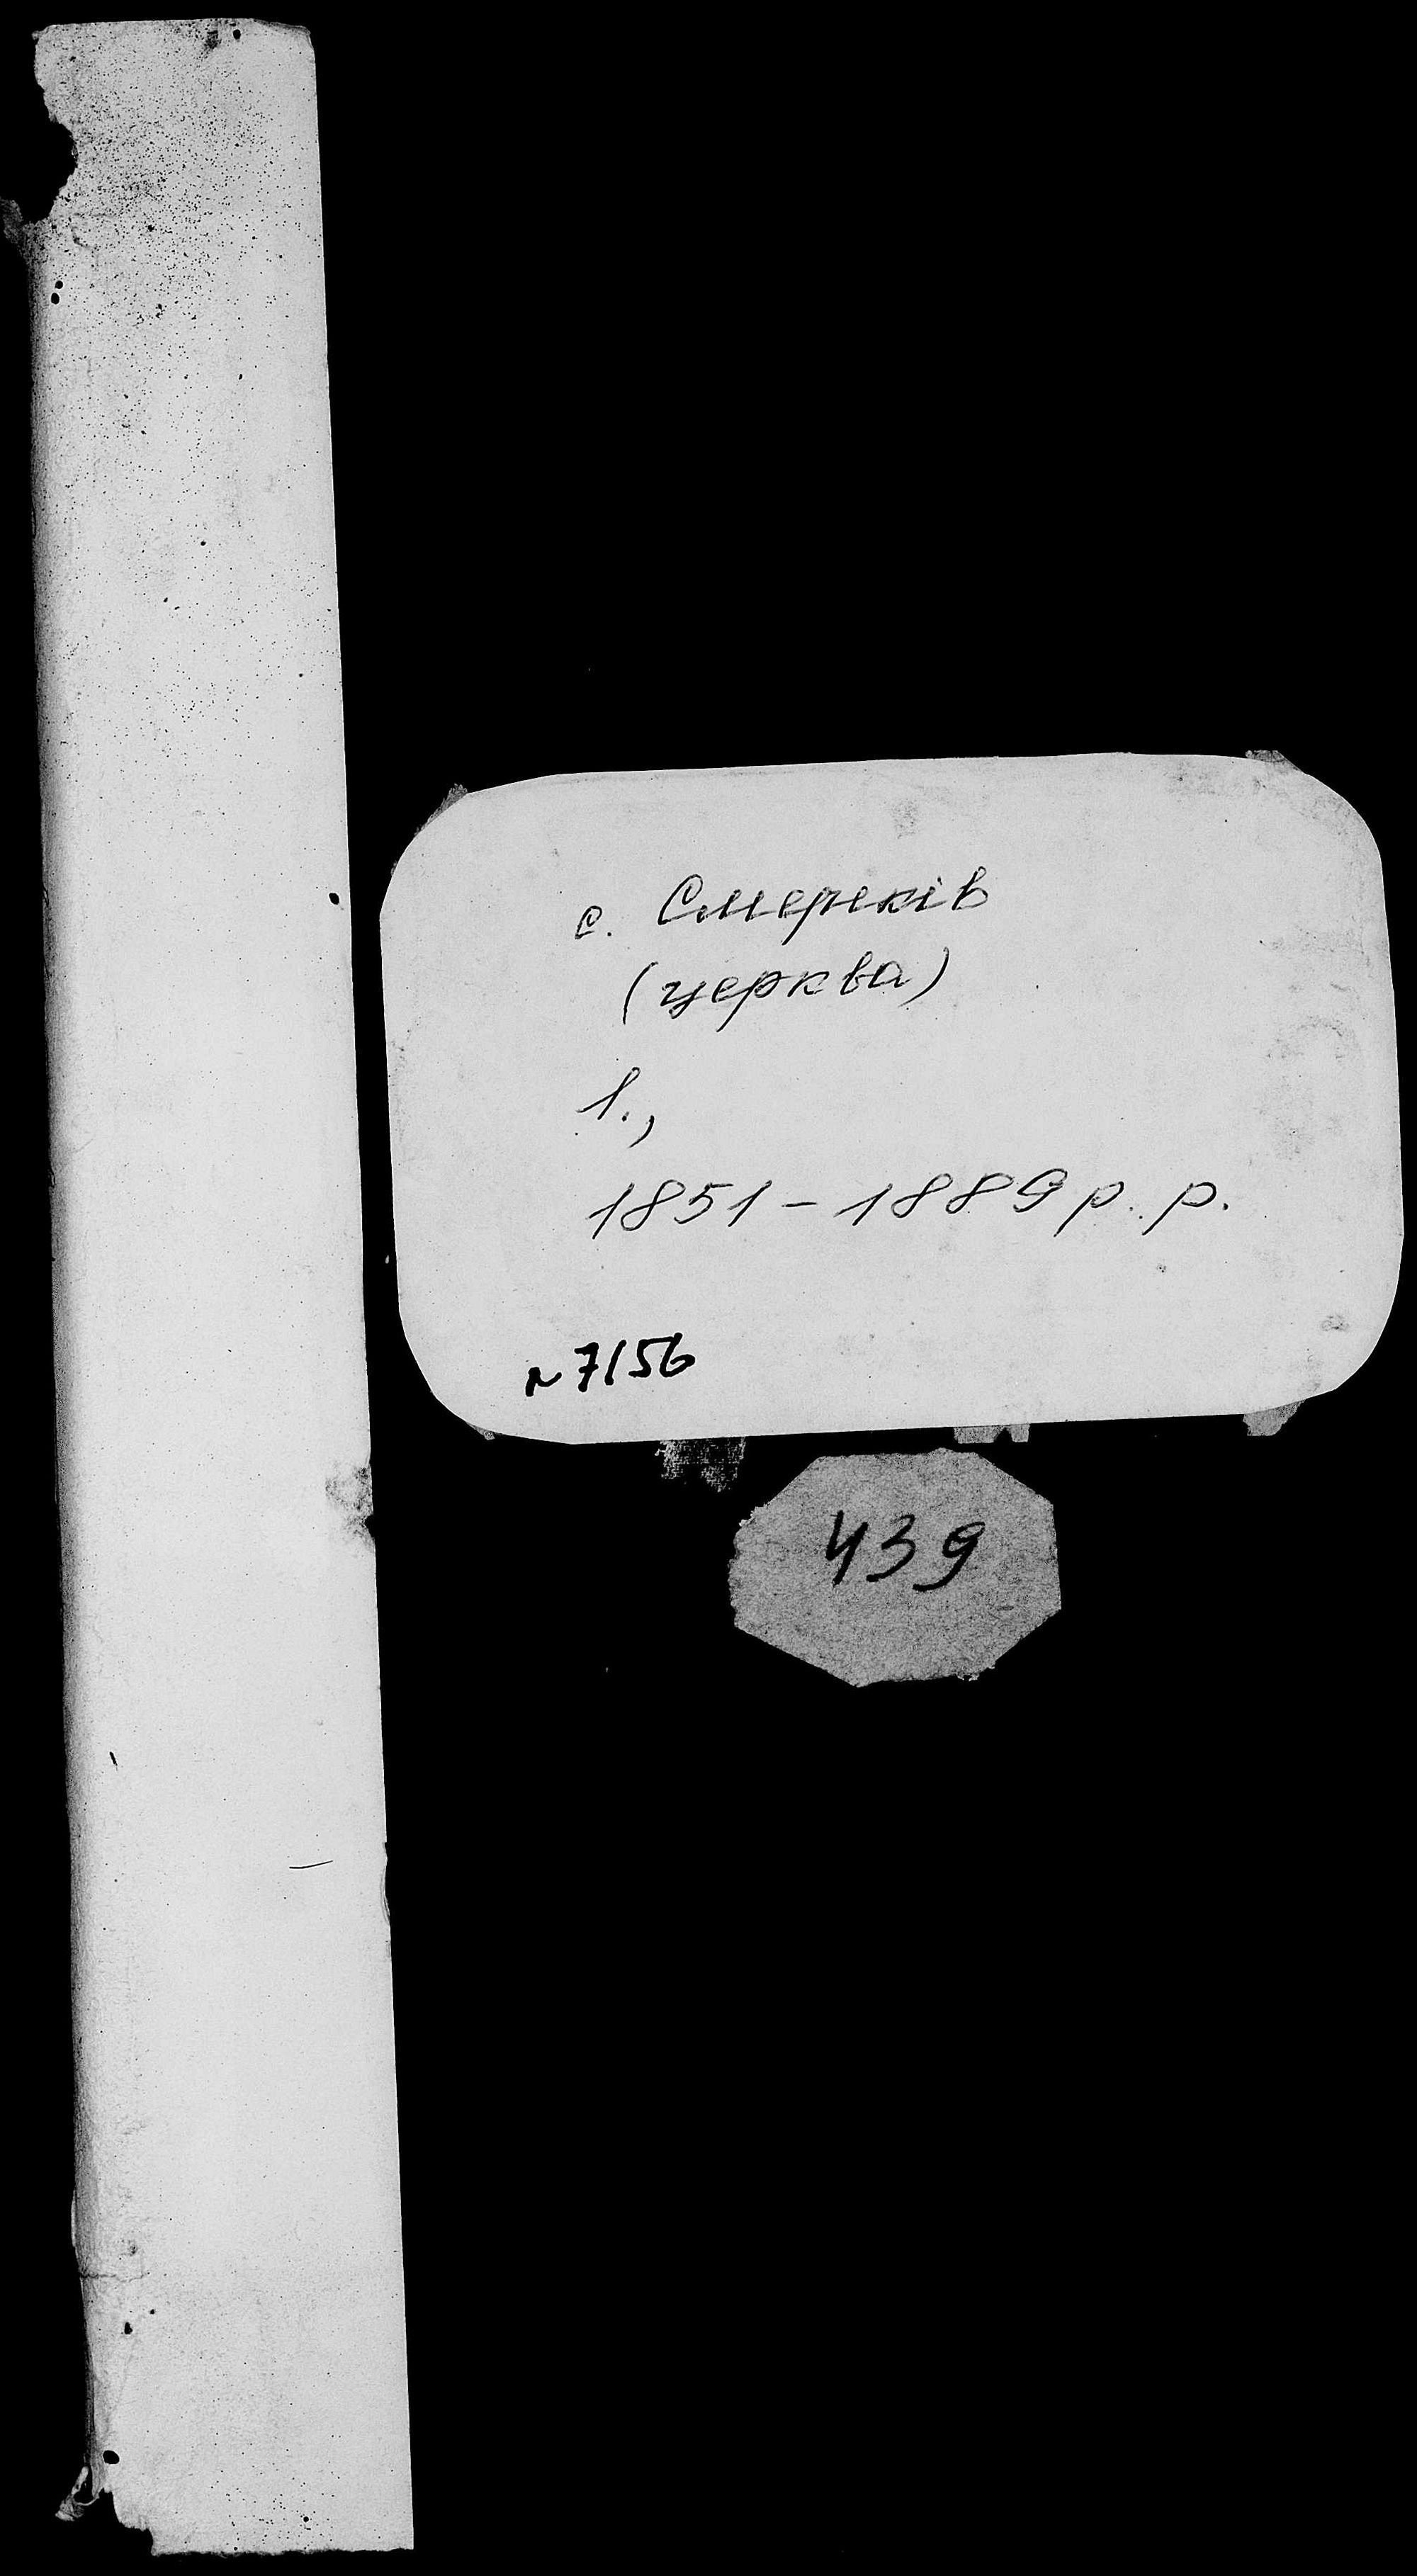 с. Смереків
(церква)
1.,
1851 - 1889 р. р.
N 7156
439